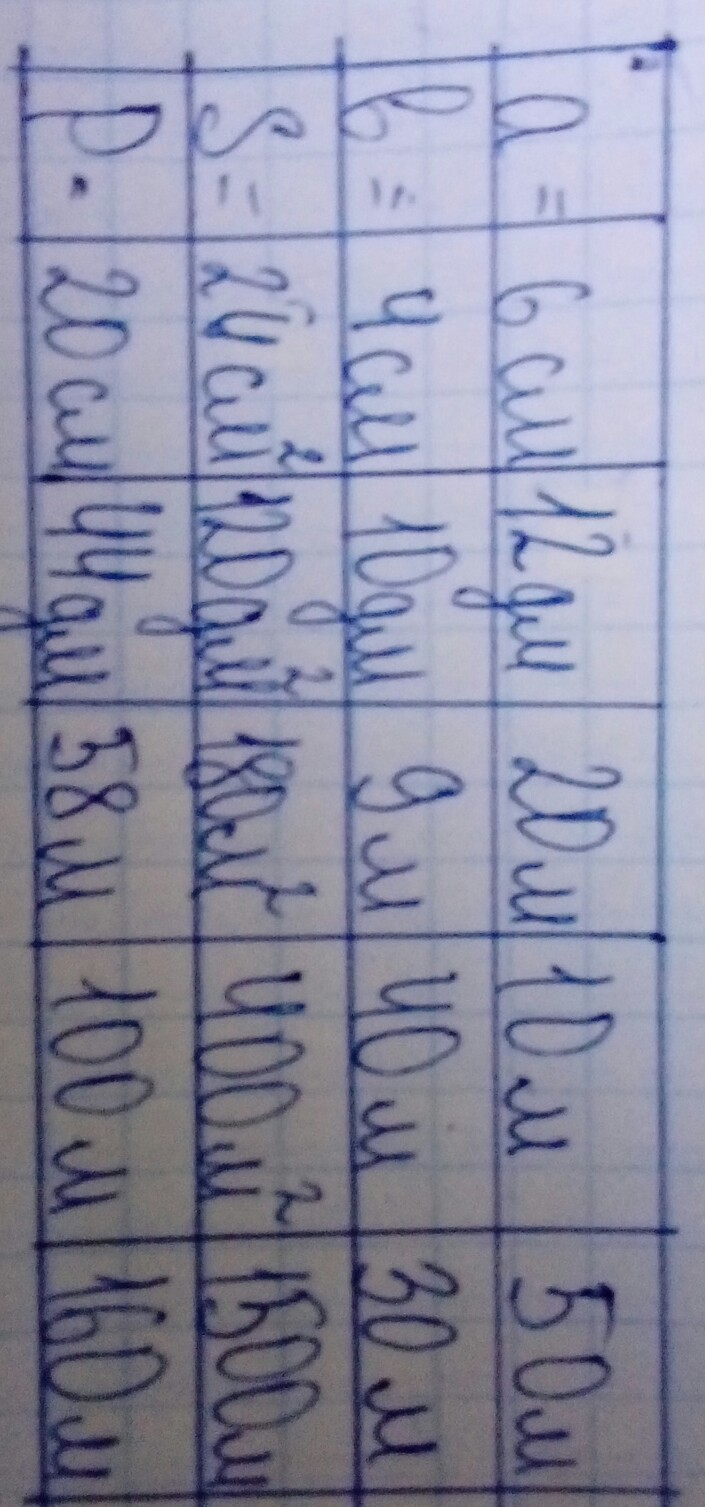 a = 6 см 12 дм 20 м 10 м 50 м
b = 4 см 10 дм 9 м 40 м 30 м
S = 24 см² 120 дм² 180 м² 400 м² 1500 м
P = 20 см 44 дм 58 м 100 м 160 м